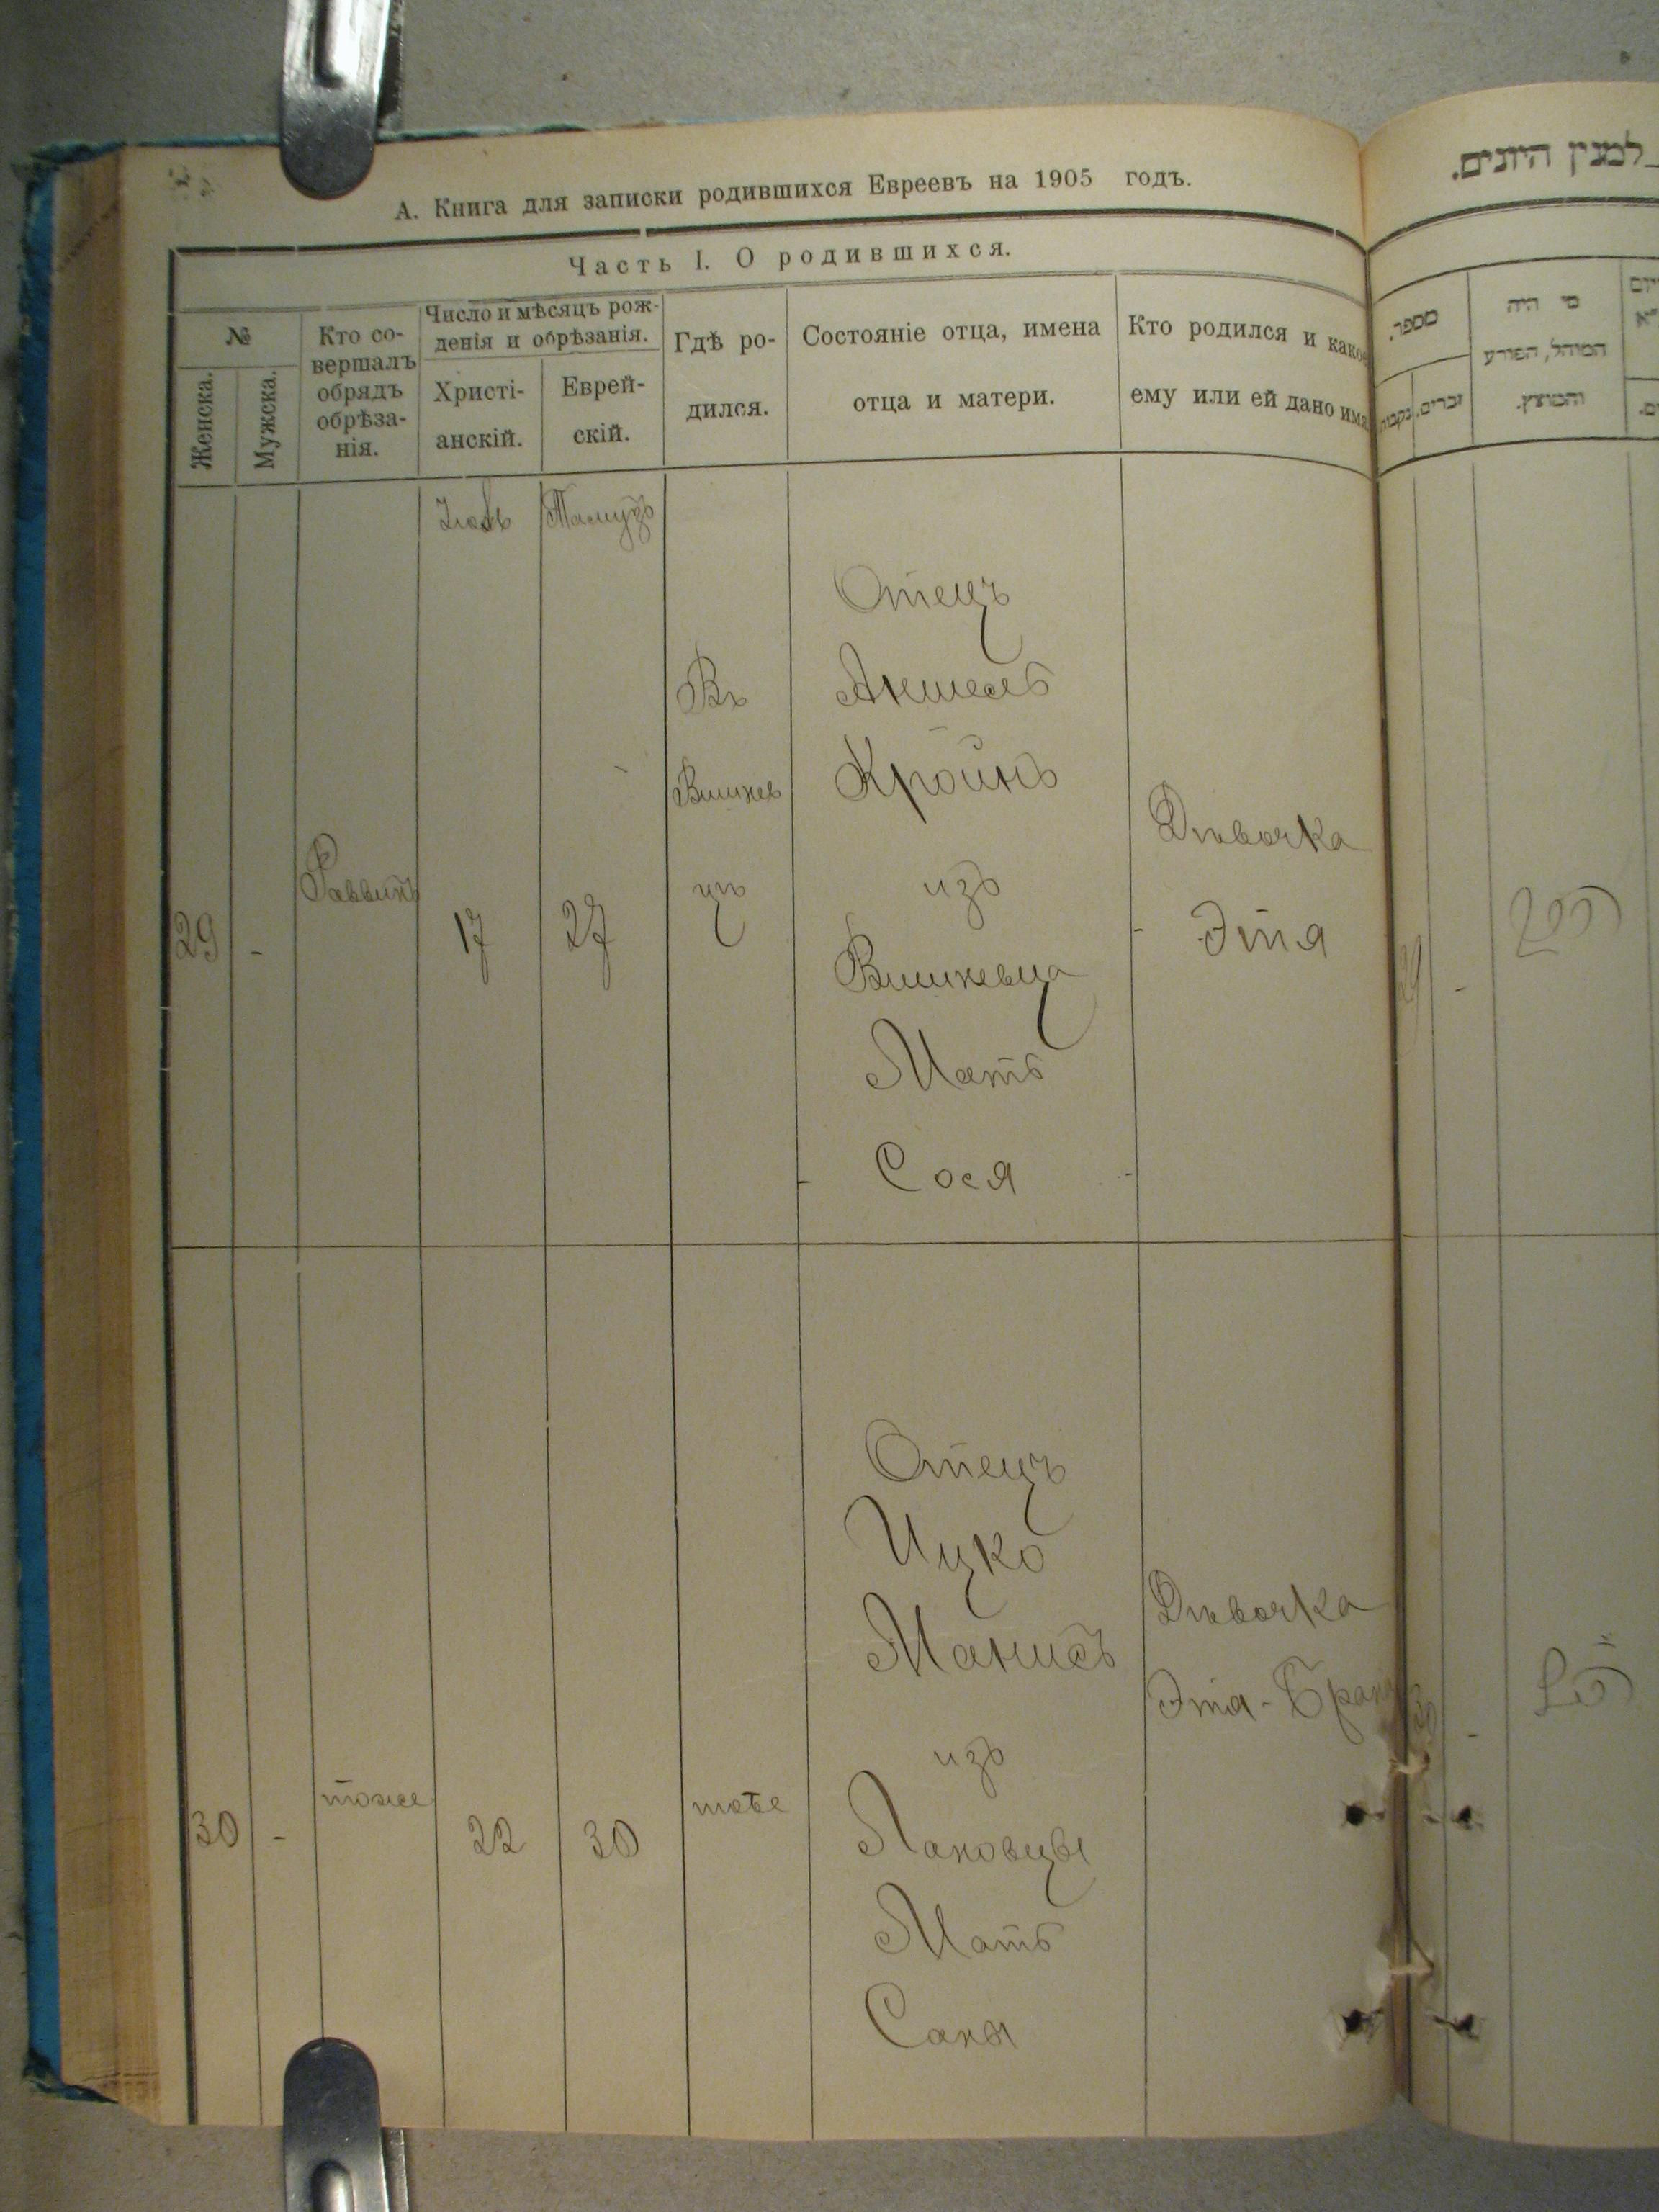 А. Книга для записки родившихся Евреевъ на 1905 годъ.
Часть I. О родившихся.
№
Женска.
Мужска.
Кто со-
вершалъ
обрядъ
обрѣза-
нія.
Число и мѣсяцъ рож-
денія и обрѣзанія.
Христі-
анскій.
Еврей-
скій.
Гдѣ ро-
дился.
Состояніе отца, имена
отца и матери.
Кто родился и какое
ему или ей дано имя
Тамузъ
29
-
Раввинъ
17
27
Въ
Вишнев
цѣ
Отецъ
Аншель
Кройнъ
изъ
Вишневца
Мать
Сося
Дѣвочка
Этя
30
-
тоже
22
30
тоже
Отецъ
Ицко
Манисъ
изъ
Лановцы
Мать
Дѣвочка
Этя-
למנין היונים.
מספר.
זכרים.
מי היה
המוהל, הפורע
והמוצץ.
29
-
30
-